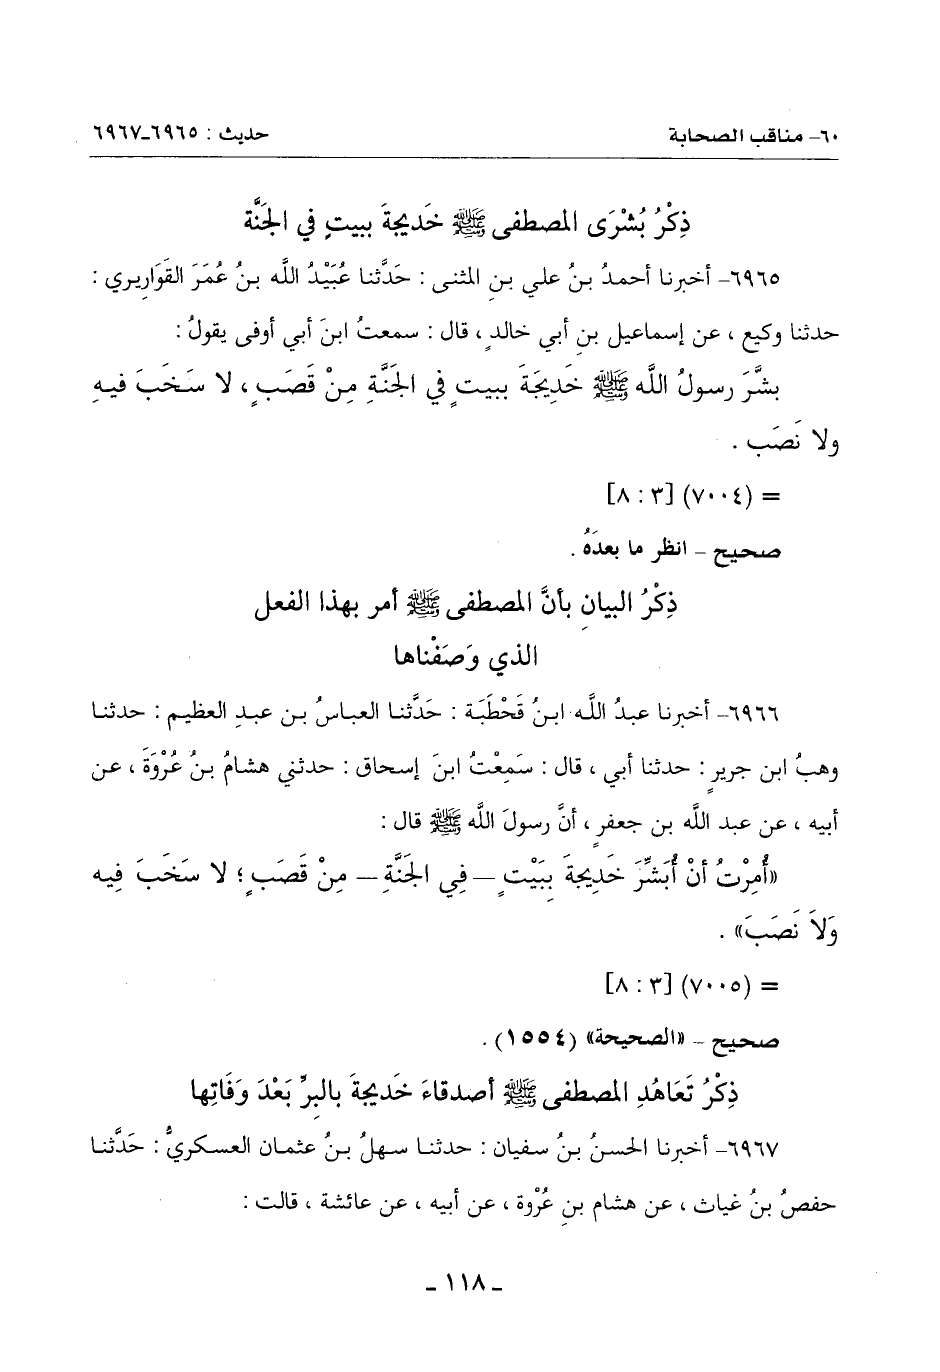 ٦٠- مناقب الصحابة حديث : ٦٩٦٥-٦٩٦٧
ذِكْرُ بُشْرَى المصطفى ﷺ خَديجةَ ببيتٍ في الجَنَّة
٦٩٦٥- أخبرنا أحمدُ بنُ علي بنِ المثنى : حَدَّثنا عُبَيْدُ الله بنُ عُمَرَ القَوَارِيري :
حدثنا وكيع ، عن إسماعيل بنِ أبي خالدٍ ، قال : سمعتُ ابنَ أبي أوفى يقولُ :
بشَّرَ رسولُ اللَّه ﷺ خَدِيجَةَ ببيتٍ في الجَنَّةِ مِنْ قَصَبٍ ، لا سَخَبَ فيهِ
ولا نَصَب .
= (٧٠٠٤) [٣ : ٨]
صحيح - انظر ما بعدَهُ .
ذِكْرُ البيانِ بأنَّ المصطفى ﷺ أمر بهذا الفعل
الذي وَصَفْناها
٦٩٦٦- أخبرنا عبدُ اللَّه ابنُ قَحْطَبَة : حَدَّثنا العباسُ بن عبدِ العظيم : حدثنا
وهبُ ابن جريرٍ : حدثنا أبي ، قال : سَمِعْتُ ابنَ إسحاق : حدثني هشامُ بنُ عُرْوَةَ ، عن
أبيه ، عن عبد اللَّه بن جعفرٍ ، أنَّ رسولَ اللَّه ﷺ قال :
«أُمِرْتُ أنْ أُبَشِّرَ خَدِيجةَ بِبَيْتٍ — فِي الجَنَّةِ — مِنْ قَصَبٍ ؛ لا سَخَبَ فِيه
وَلاَ نَصَبَ» .
= (٧٠٠٥) [٣ : ٨]
صحيح - «الصحيحة» (١٥٥٤) .
ذِكْرُ تَعَاهُدِ المصطفى ﷺ أصدقاءَ خَديجةَ بالبرِّ بَعْدَ وَفَاتِها
٦٩٦٧- أخبرنا الحسنُ بنُ سفيان : حدثنا سهلُ بنُ عثمان العسكريُّ : حَدَّثنا
حفصُ بنُ غياث ، عن هشام بنِ عُرْوة ، عن أبيه ، عن عائشة ، قالت :
- ١١٨ -